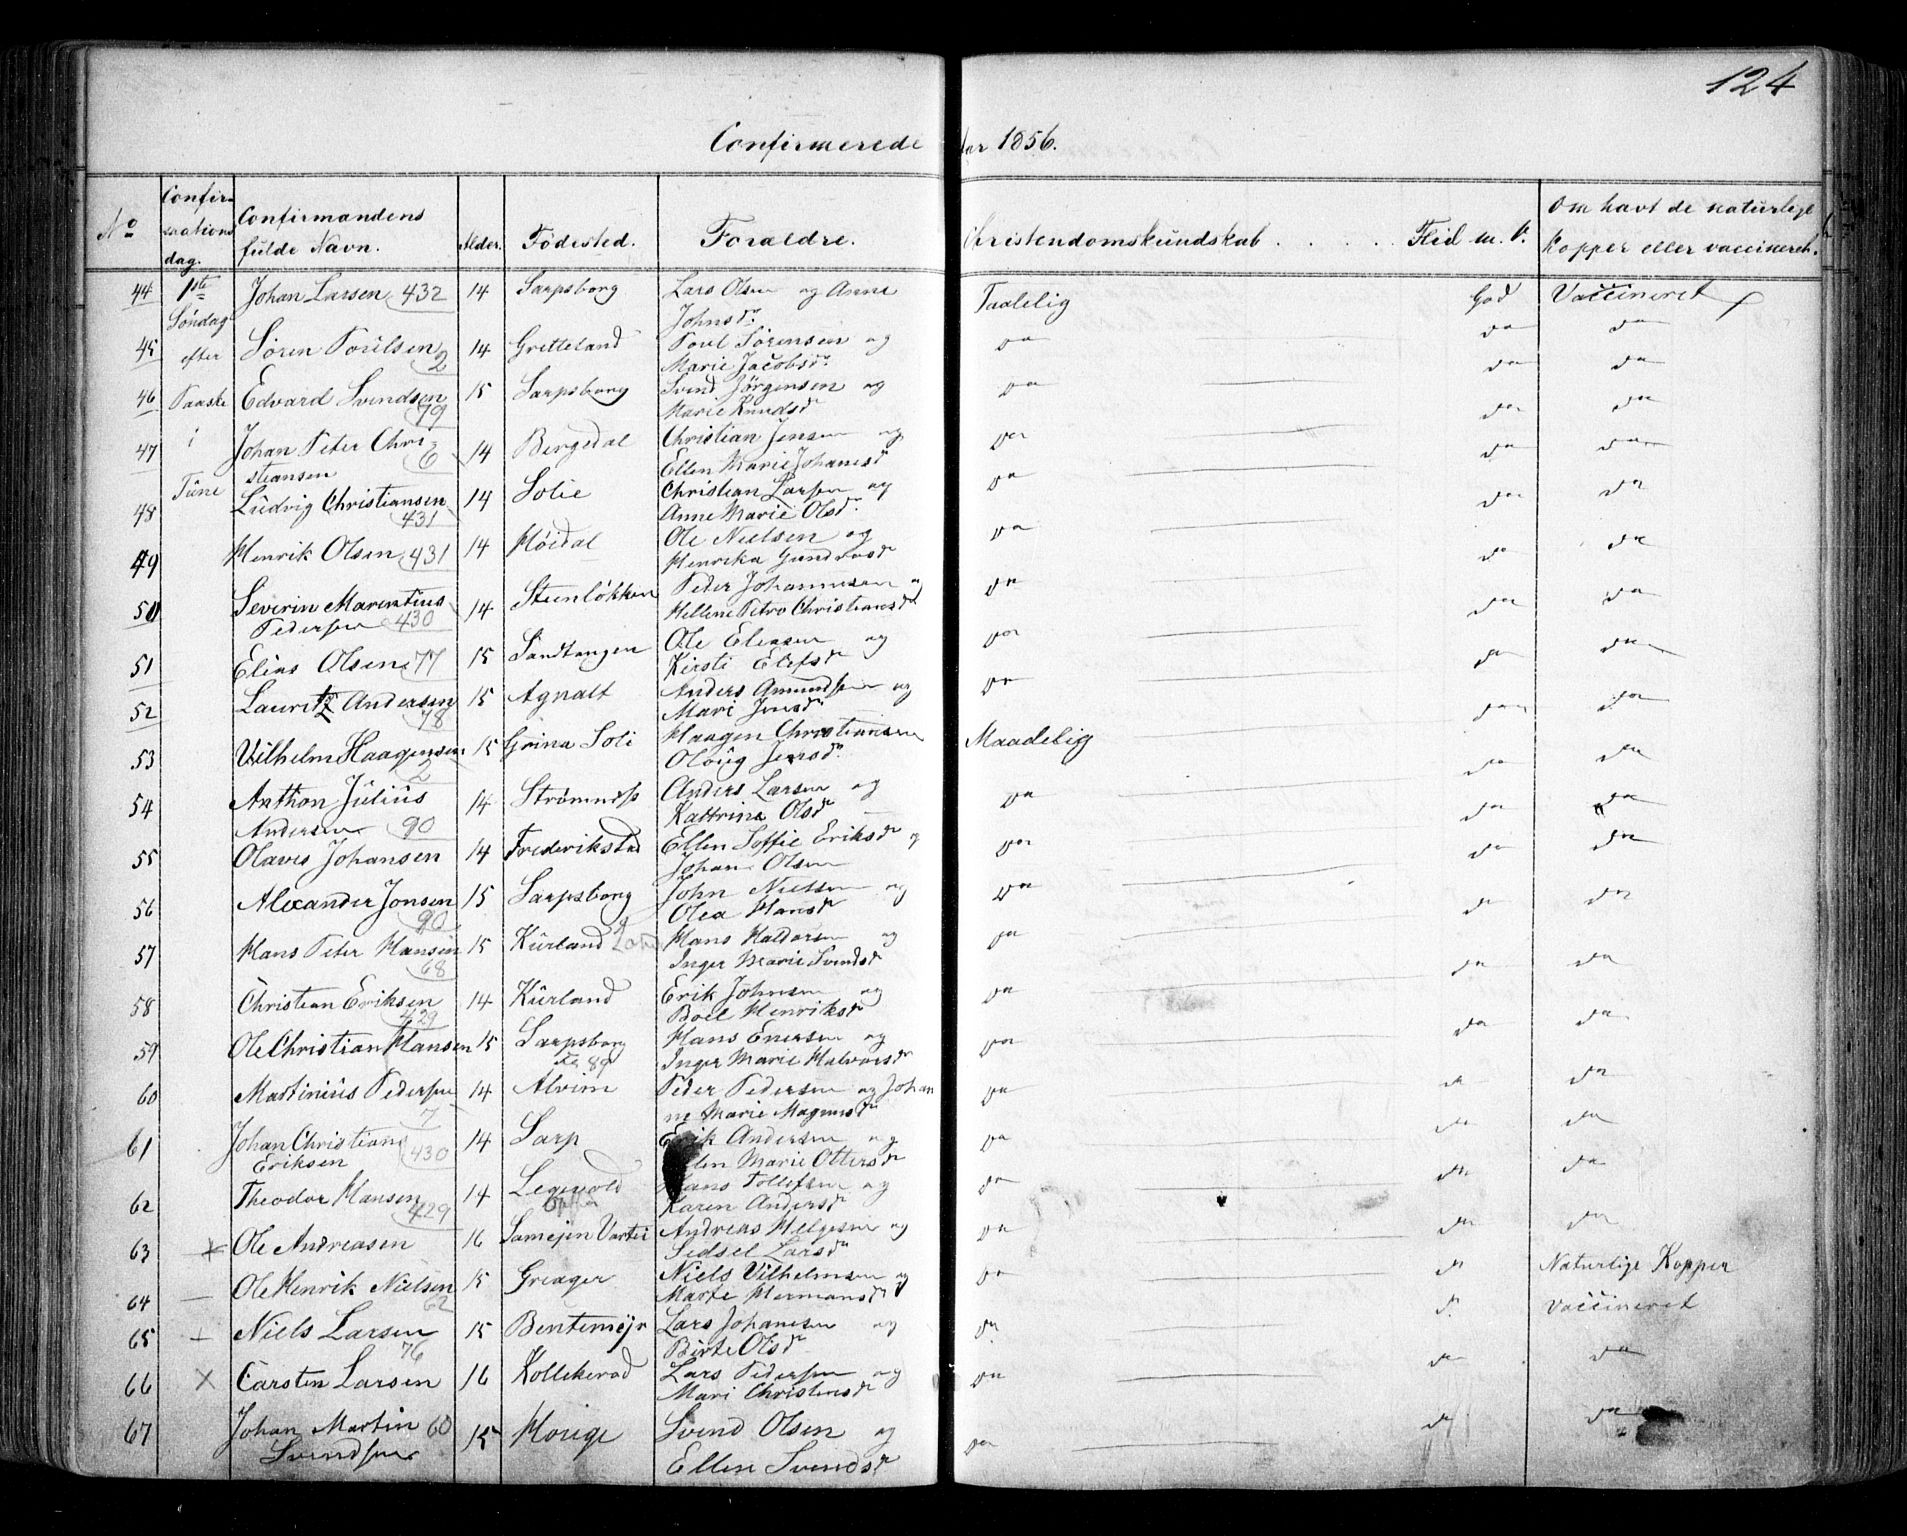 124
Confirmerede
for 1856.
No
Confir-
mations
dag.
Confirmandens
fulde Navn.
Alder.
Fødested.
Forældre.
Christendomskundskab . . . . . Flid m. V.
Om havt de naturlige
Kopper eller vaccineret.
44 1ste Johan Larsen 432 14 Sarpsborg Lars Olsen og Anne Taalelig God Vaccineret
Søndag Johnsdr
45 efter Søren Poulsen 2 14 Gretteland Poul Sørensen og do do do
Marie Jacobsdr
46 Paaske Edvard Svendsen 15 Sarpsborg Svend Jørgensen og do do do
79 Marie Knudsdr
47 i Johan Peter Chri- 14 Bergedal Christian Jensen og do do do
6 stiansen Ellen Marie Johansdr
48 Tune Ludvig Christiansen 14 Solie Christian Larsen og do do do
431 Anne Marie Olsdr
49 Henrik Olsen 431 14 Høidal Ole Nielsen og do do do
Henrika Gundersdr
50 Severin Marentius 14 Steenløkken Peder Johannesen og do do do
Pedersen 430 Hellene Petro Christiansdr
51 Elias Olsen 77 15 Sandtangen Ole Eliasen og do do do
Kirsti Elefsdr
52 Lauritz Andersen 15 Agnalt Anders Amundsen og do do do
78 Mari Jensdr
53 Vilhelm Haagensen 15 Grina Soli Haagen Christiansen Maadelig do do
2 Oloug Jensdr
54 Anthon Julius 14 Strømnes Anders Larsen og do do do
Andersen 90 Kattrina Olsdr
55 Olaves Johansen 14 Frederikstad Ellen Soffie Eriksdr og do do do
Johan Olsen
56 Alexander Jonsen 15 Sarpsborg John Nielsen og do do do
90 Olea Hansdr
57 Hans Peter Hansen 15 Kurland Hans Haldorsen og do do do
68 Inger Marie Svendsdr
58 Christian Eriksen 14 Kurland Erik Johnsen og do do do
429 Boel Henriksdr
59 Ole Christian Hansen 15 Sarpsborg Hans Enersen og do do do
89 Inger Marie Halvorsdr
60 Martinius Pedersen 14 Alvim Peder Pedersen og Johan do do do
7 ne Marie Magnusdr
61 Johan Christian 14 Sarp Erik Andersen og do do do
Eriksen 430 Ellen Marie Ottersdr
62 Theodor Hansen 14 Hans Tollefsen og do do do
429 Karen Andersdr
63 Ole Andreasen 16 Andreas Helgesen og do do do
Sidsel Larsdr
64 Ole Henrik Nielsen 15 Greager Niels Vilhelmsen og do do Naturlige Kopper
62 Marte Hermansdr
65 Niels Larsen 15 Bentemeyr Lars Johansen og do do Vaccineret
76 Birte Olsdr
66 Carsten Larsen 16 Kollekerød Lars Pedersen og do do do
Mari Christensdr
67 Johan Martin 60 15 Houge Svend Olsen og do do do
Svendsen Ellen Svendsdr